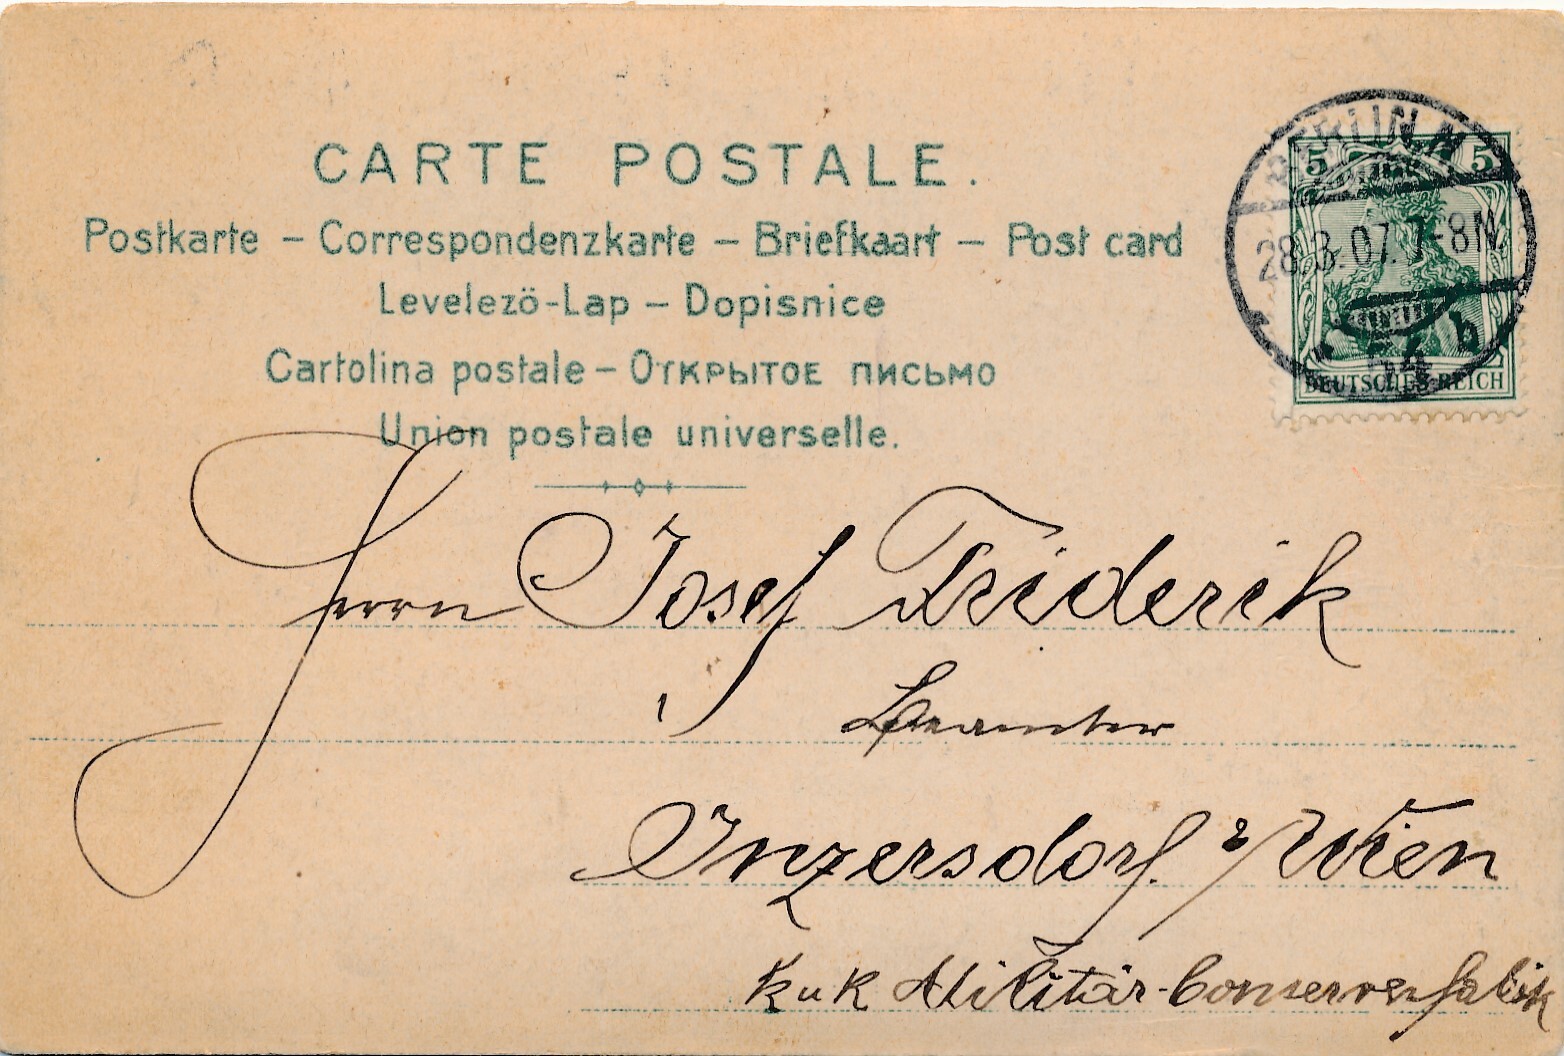 CARTE POSTALE.
Postkarte – Correspondenzkarte – Briefkaart – Post card
Levelezö-Lap – Dopisnice
Cartolina postale – Открытое письмо
Union postale universelle.
BERLIN.N.
5 5
28.3.07. 7-8N.
54 b
DEUTSCHES REICH
Herrn Josef Friderik
Beamter
Inzersdorf. b/Wien
K u K Militär-Conservenfabrik